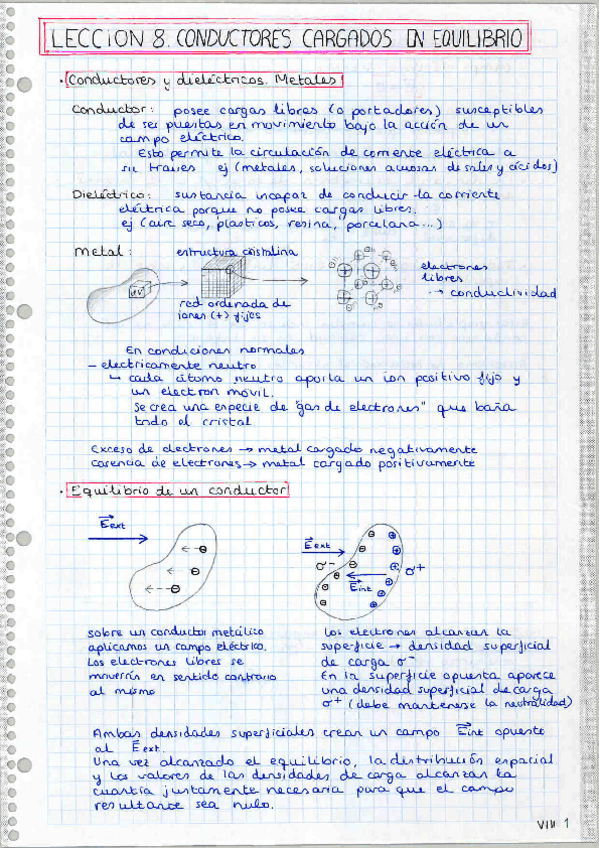 LECCION 8. CONDUCTORES CARGADOS EN EQUILIBRIO
· Conductores y dieléctricos. Metales
Conductor: posee cargas libres (o portadores) susceptibles
de ser puestas en movimiento bajo la acción de un
campo eléctrico.
Esto permite la circulación de corriente eléctrica a
su traves ej (metales, soluciones acuosas de sales y ácidos)
Dieléctrico: sustancia incapaz de conducir la corriente
eléctrica porque no posee cargas libres.
ej (aire seco, plasticos, resina, porcelana...)
Metal:
estructura cristalina
red ordenada de
iones (+) fijos
electrones
libres
→ conductividad
En condiciones normales
- electricamente neutro
↳ cada átomo neutro aporta un ion positivo fijo y
un electron móvil.
Se crea una especie de "gas de electrones" que baña
todo el cristal
Exceso de electrones → metal cargado negativamente
carencia de electrones → metal cargado positivamente
· Equilibrio de un conductor
E⃗ext
E⃗ext
σ-
σ+
E⃗int
sobre un conductor metálico
aplicamos un campo eléctrico.
Los electrones libres se
moverán en sentido contrario
al mismo
Los electrones alcanzan la
superficie → densidad superficial
de carga σ-
En la superficie opuesta aparece
una densidad superficial de carga
σ+ (debe mantenerse la neutralidad)
Ambas densidades superficiales crean un campo E⃗int opuesto
al E⃗ext.
Una vez alcanzado el equilibrio, la distribución espacial
y los valores de las densidades de carga alcanzan la
cuantía justamente necesaria para que el campo
resultante sea nulo.
VIII 1